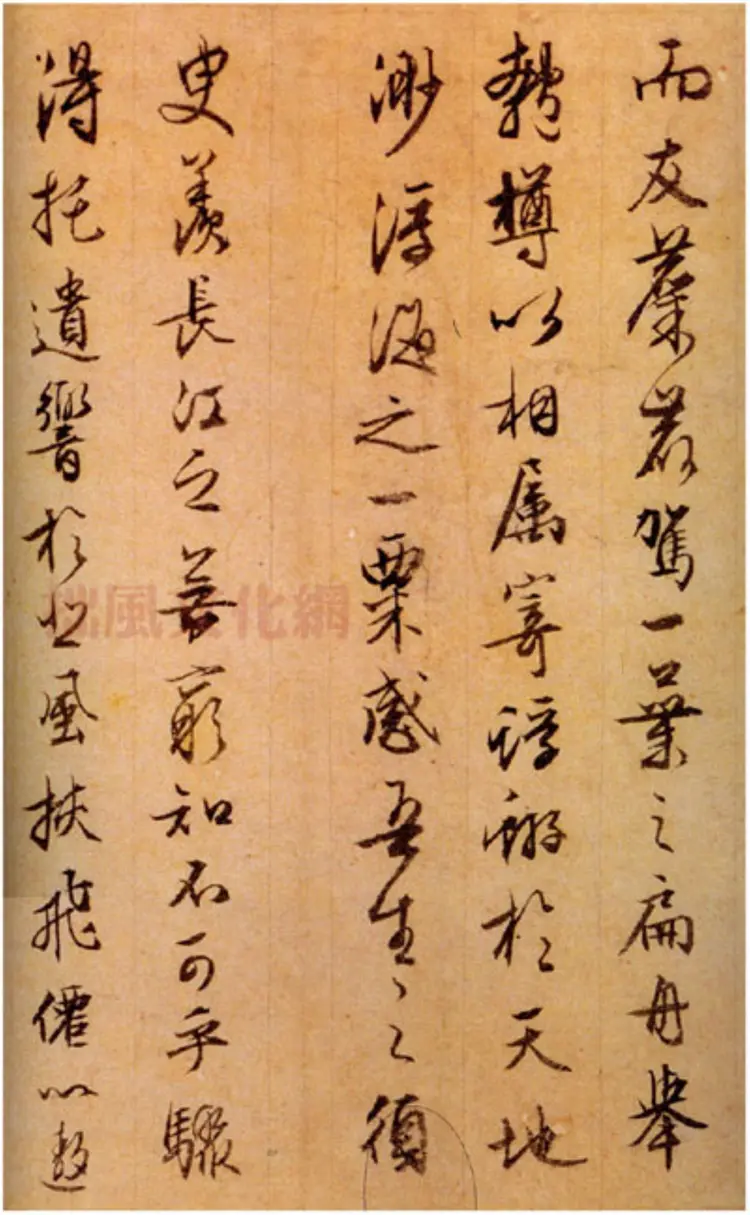 而友麋鹿駕一葉之扁舟舉
匏樽以相属寄蜉蝣於天地
渺浮海之一粟感吾生之須
臾羨長江之無窮知不可乎驟
得托遺響於悲風挾飛僊以遨
拙風文化網